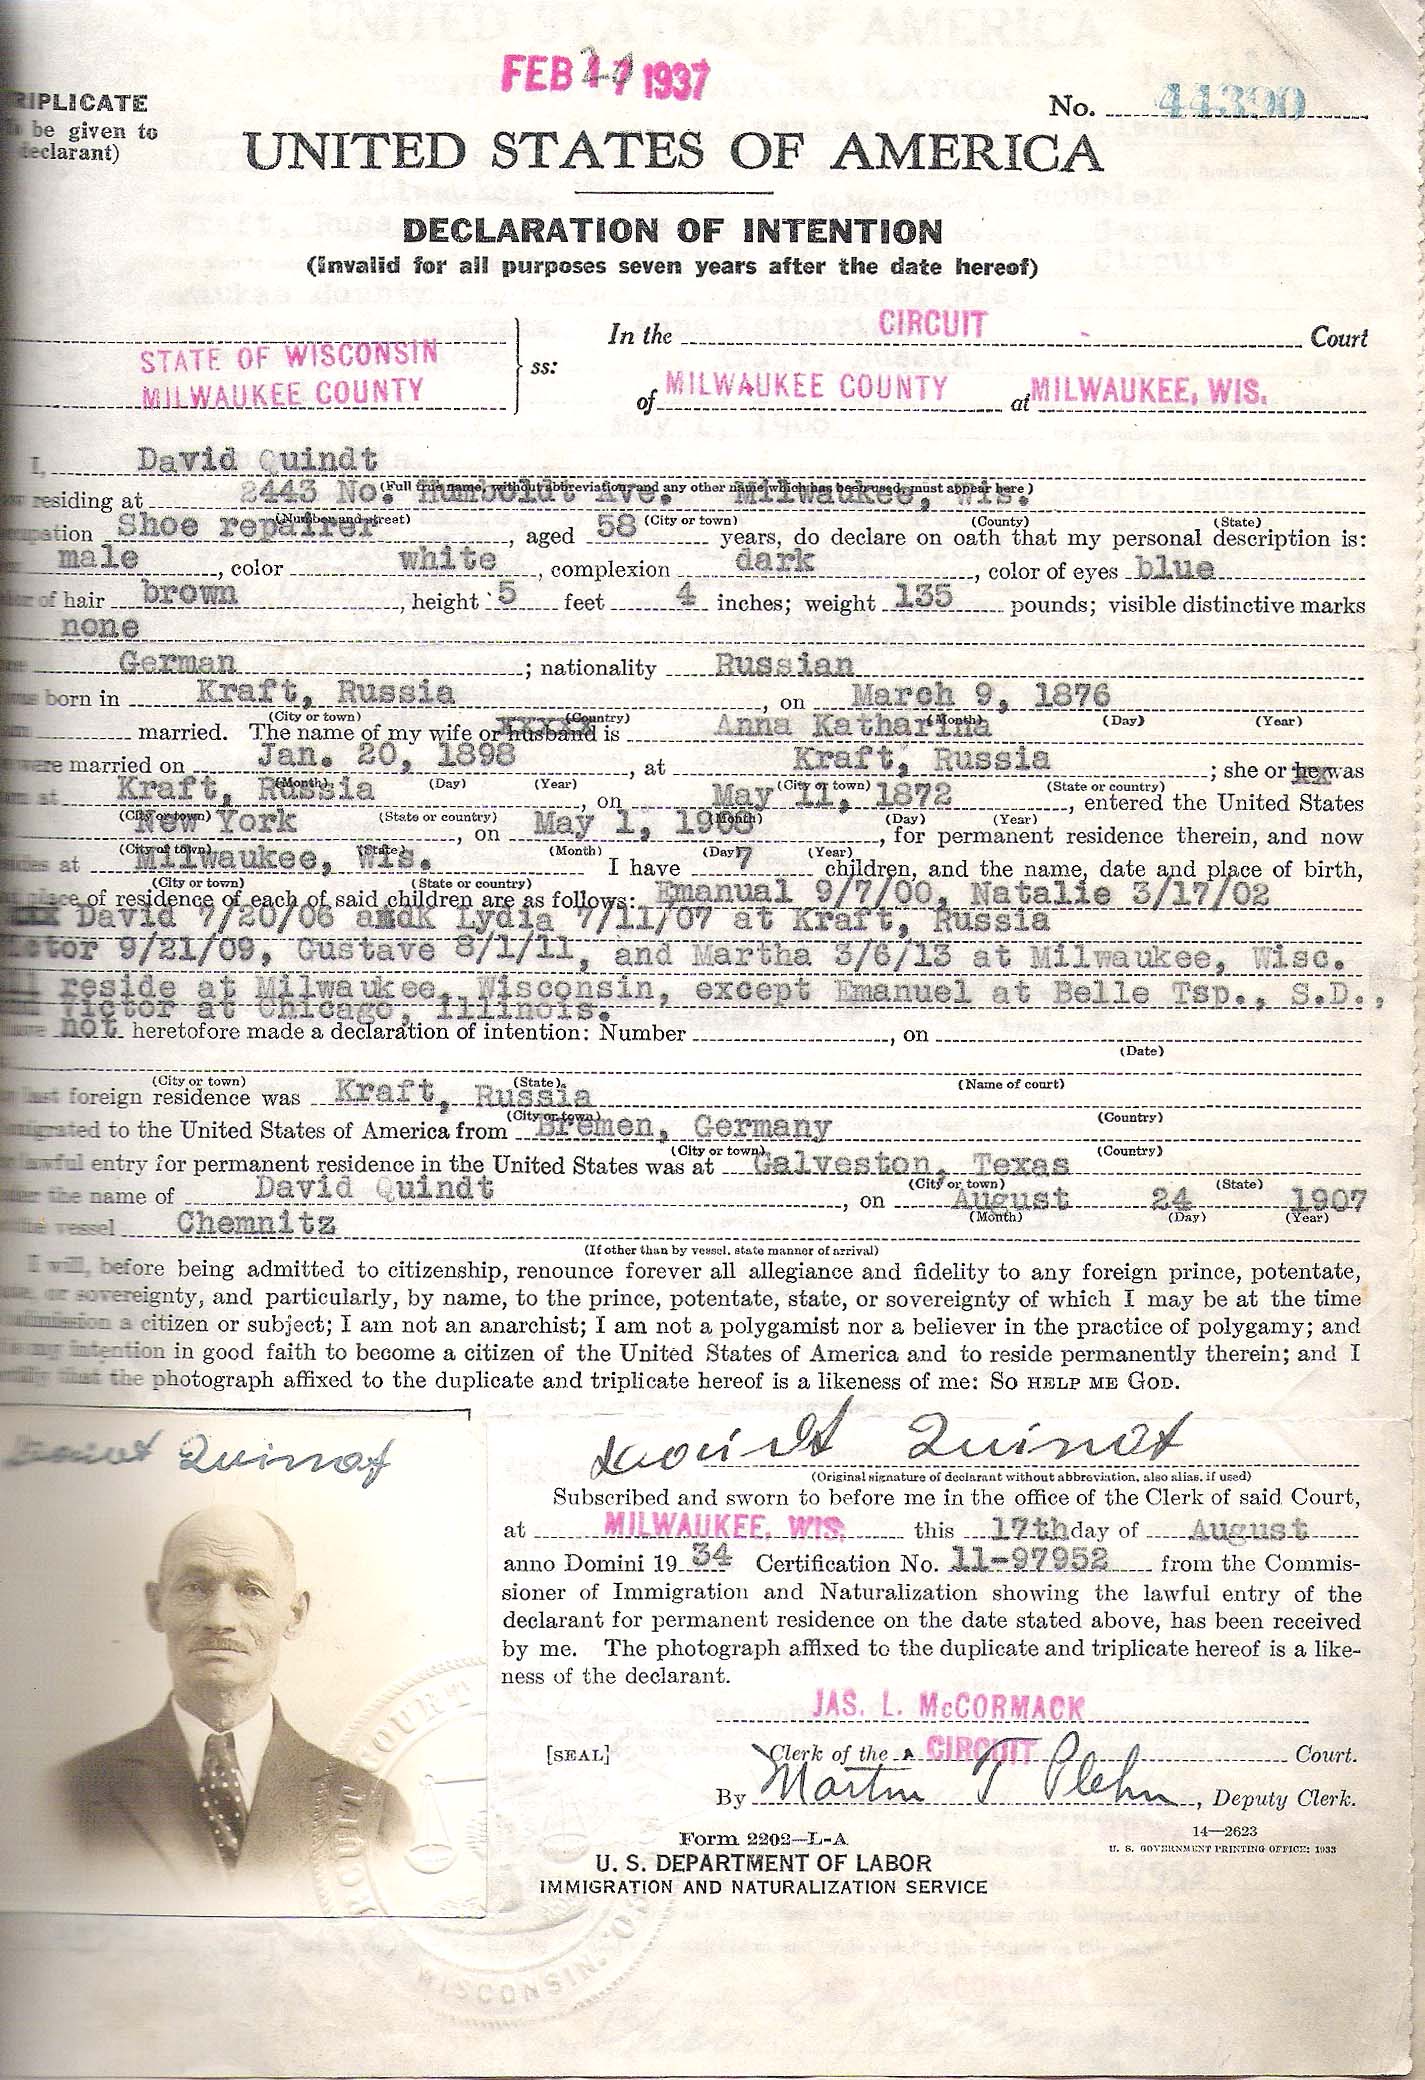 FEB 1937
TRIPLICATE
be given to
declarant)
No. 44390
UNITED STATES OF AMERICA
DECLARATION OF INTENTION
(Invalid for all purposes seven years after the date hereof)
STATE OF WISCONSIN
MILWAUKEE COUNTY
ss:
In the CIRCUIT Court
of MILWAUKEE COUNTY at MILWAUKEE, WIS.
I, David Quindt
(Full true name, without abbreviation, and any other name which has been used, must appear here)
residing at 2443 No. Humboldt Ave. Milwaukee, Wis.
(Number and street) (City or town) (County) (State)
Shoe repairer, aged 58 years, do declare on oath that my personal description is:
male, color white, complexion dark, color of eyes blue
of hair brown, height 5 feet 4 inches; weight 135 pounds; visible distinctive marks
none
German; nationality Russian
born in Kraft, Russia, on March 9, 1876
(City or town) (Country) (Month) (Day) (Year)
married. The name of my wife or husband is Anna Katharina
were married on Jan. 20, 1898, at Kraft, Russia; she or he was
(Month) (Day) (Year) (City or town) (State or country)
at Kraft, Russia, on May 11, 1872, entered the United States
(City or town) (State or country) (Month) (Day) (Year)
New York, on May 1, 1908, for permanent residence therein, and now
(City or town) (State) (Month) (Day) (Year)
at Milwaukee, Wis. I have 7 children, and the name, date and place of birth,
(City or town) (State or country)
place of residence of each of said children are as follows: Emanual 9/7/00, Natalie 3/17/02
David 7/20/06 andk Lydia 7/11/07 at Kraft, Russia
9/21/09, Gustave 8/1/11, and Martha 3/6/13 at Milwaukee, Wisc.
reside at Milwaukee, Wisconsin, except Emanuel at Belle Tsp., S.D.,
Victor at Chicago, Illinois.
not heretofore made a declaration of intention: Number , on
(Date)
(City or town) (State) (Name of court)
last foreign residence was Kraft, Russia
(City or town) (Country)
to the United States of America from Bremen, Germany
(City or town) (Country)
lawful entry for permanent residence in the United States was at Galveston, Texas
(City or town) (State)
the name of David Quindt, on August 24 1907
(Month) (Day) (Year)
vessel Chemnitz
(If other than by vessel, state manner of arrival)
I will, before being admitted to citizenship, renounce forever all allegiance and fidelity to any foreign prince, potentate,
or sovereignty, and particularly, by name, to the prince, potentate, state, or sovereignty of which I may be at the time
a citizen or subject; I am not an anarchist; I am not a polygamist nor a believer in the practice of polygamy; and
my intention in good faith to become a citizen of the United States of America and to reside permanently therein; and I
that the photograph affixed to the duplicate and triplicate hereof is a likeness of me: SO HELP ME GOD.
David Quindt
David Quindt
(Original signature of declarant without abbreviation, also alias, if used)
Subscribed and sworn to before me in the office of the Clerk of said Court,
at MILWAUKEE, WIS. this 17th day of August
anno Domini 19 34 Certification No. 11-97952 from the Commis-
sioner of Immigration and Naturalization showing the lawful entry of the
declarant for permanent residence on the date stated above, has been received
by me. The photograph affixed to the duplicate and triplicate hereof is a like-
ness of the declarant.
JAS. L. McCORMACK
[SEAL]
Clerk of the CIRCUIT Court.
By Martin T Plehn, Deputy Clerk.
Form 2202-L-A
U. S. DEPARTMENT OF LABOR
IMMIGRATION AND NATURALIZATION SERVICE
14—2623
U. S. GOVERNMENT PRINTING OFFICE: 1933
COURT
WISCONSIN